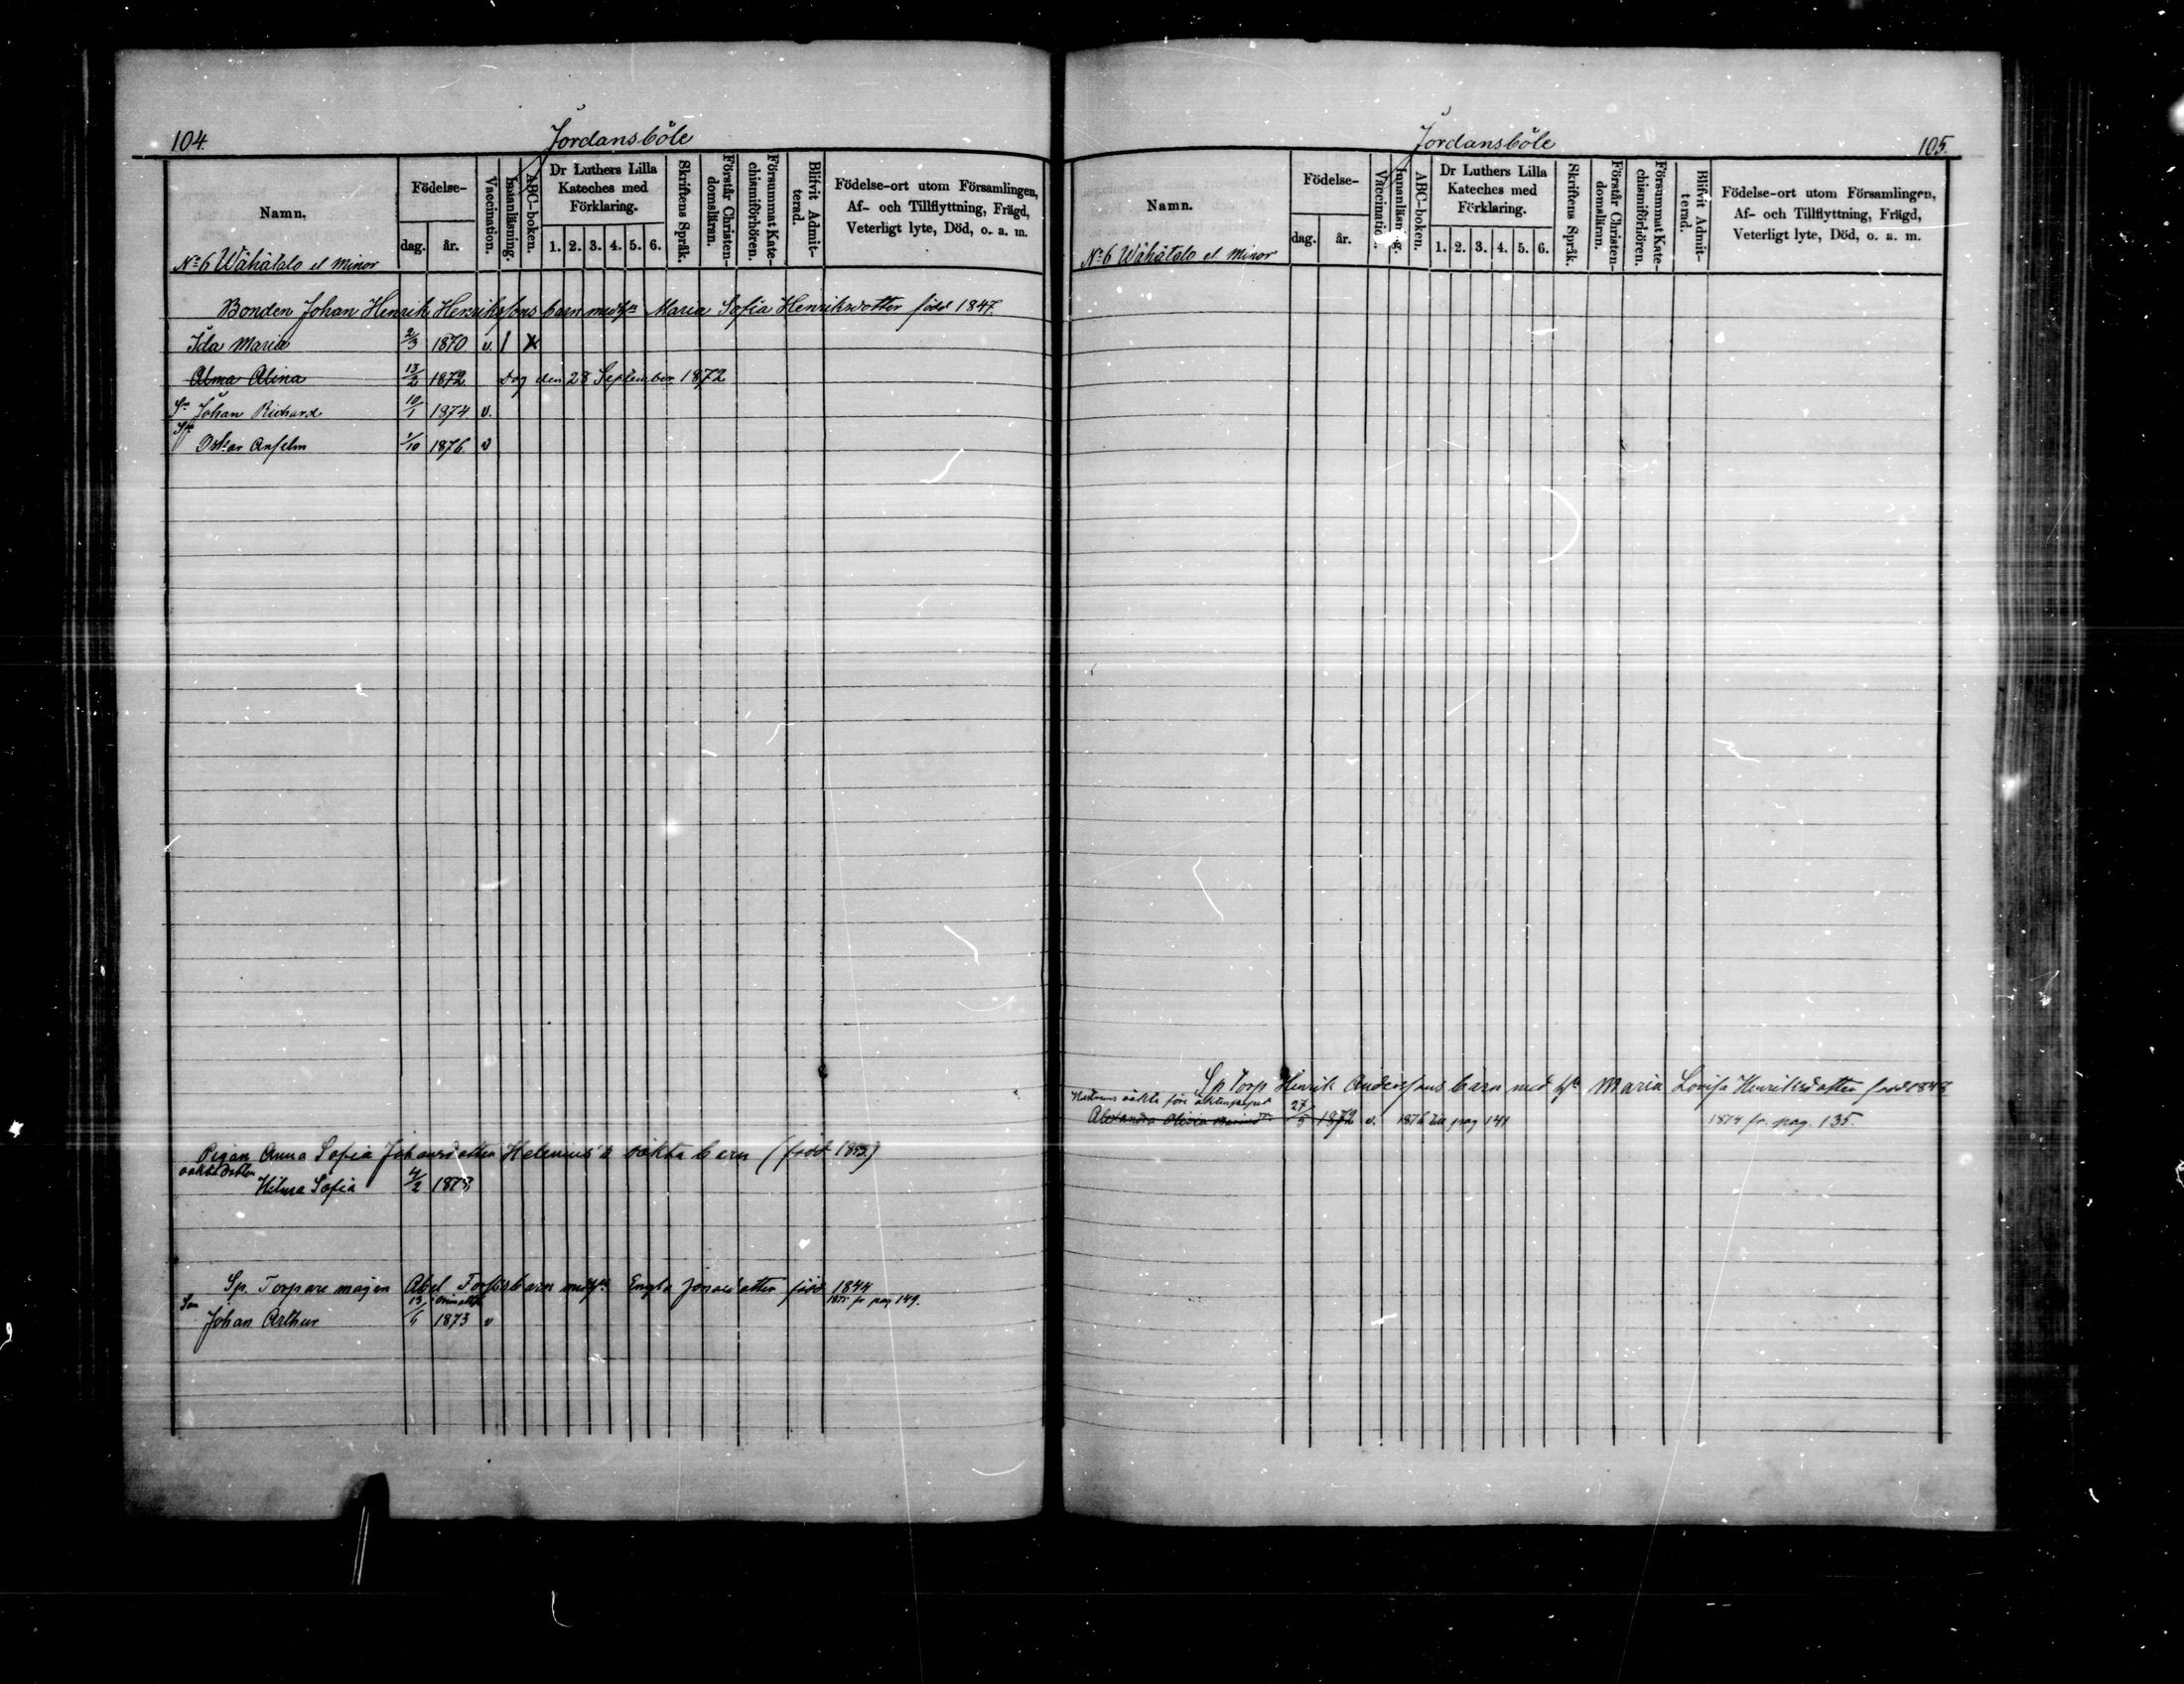 104. Jordansböle
Namn.
Födelse-
dag. år.
Vaccination.
Innanläsning.
ABC-boken.
Dr Luthers Lilla Kateches med Förklaring.
1. 2. 3. 4. 5. 6.
Skriftens Språk.
Förstår Christendomsläran.
Försummat Katechismiförhören.
Blifvit Admitterad.
Födelse-ort utom Församlingen,
Af- och Tillflyttning, Frägd,
Veterligt lyte, Död, o. a. m.
No 6 Wähätalo el Minor
Bonden Johan Henrik Henrikssons barn med h Maria Sofia Henriksdotter född 1847.
Ida Maria 2/3 1870 v. 1 X
Alma Alina 13/2 1872 dog den 28 September 1872
Sn Johan Richard 10/1 1874 v.
Sn Oskar Anselm 1/10 1876. v
Pigan Anna Sofia Johansdotter Helenius' o äkta barn (född 1853)
oäkta dotter
Hilma Sofia 4/2 1873
Sp. Torpare mågen Abel Forss barn med h. Engla Jonasdotter född 1844
Son 13/6 1875 fr pag 149.
Johan Arthur 1873 v
Jordansböle 105.
Namn.
Födelse-
dag. år.
Vaccination.
Innanläsning.
ABC-boken.
Dr Luthers Lilla Kateches med Förklaring.
1. 2. 3. 4. 5. 6.
Skriftens Språk.
Förstår Christendomsläran.
Försummat Katechismiförhören.
Blifvit Admitterad.
Födelse-ort utom Församlingen,
Af- och Tillflyttning, Frägd,
Veterligt lyte, Död, o. a. m.
No 6 Wähätalo el Minor
Sp Torp Henrik Anderssons barn med h Maria Lovisa Henriksdotter född 1848
Hustruns oäkta före äktenskapet
Alexandra Olivia 27/5 1872 v. 1876 till pag 141 1874 fr. pag. 135.